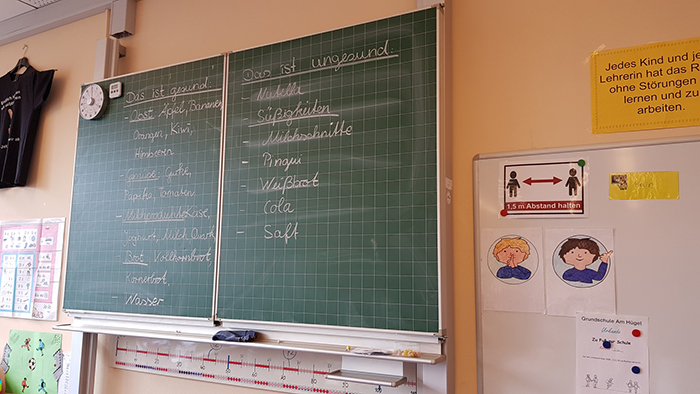 Das ist gesund:
- Obst: Äpfel, Bananen,
Orangen, Kiwi,
Himbeeren
- Gemüse: Gurke,
Paprika, Tomaten
- Milchprodukte: Käse,
Joghurt, Milch, Quark
- Brot: Vollkornbrot
Körnerbrot
- Wasser
Das ist ungesund:
- Nutella
- Süßigkeiten
- Milchschnitte
- Pingui
- Weißbrot
- Cola
- Saft
Jedes Kind und je
Lehrerin hat das R
ohne Störungen
lernen und zu
arbeiten.
1,5 m Abstand halten
Grundschule Am Hügel
Urkunde